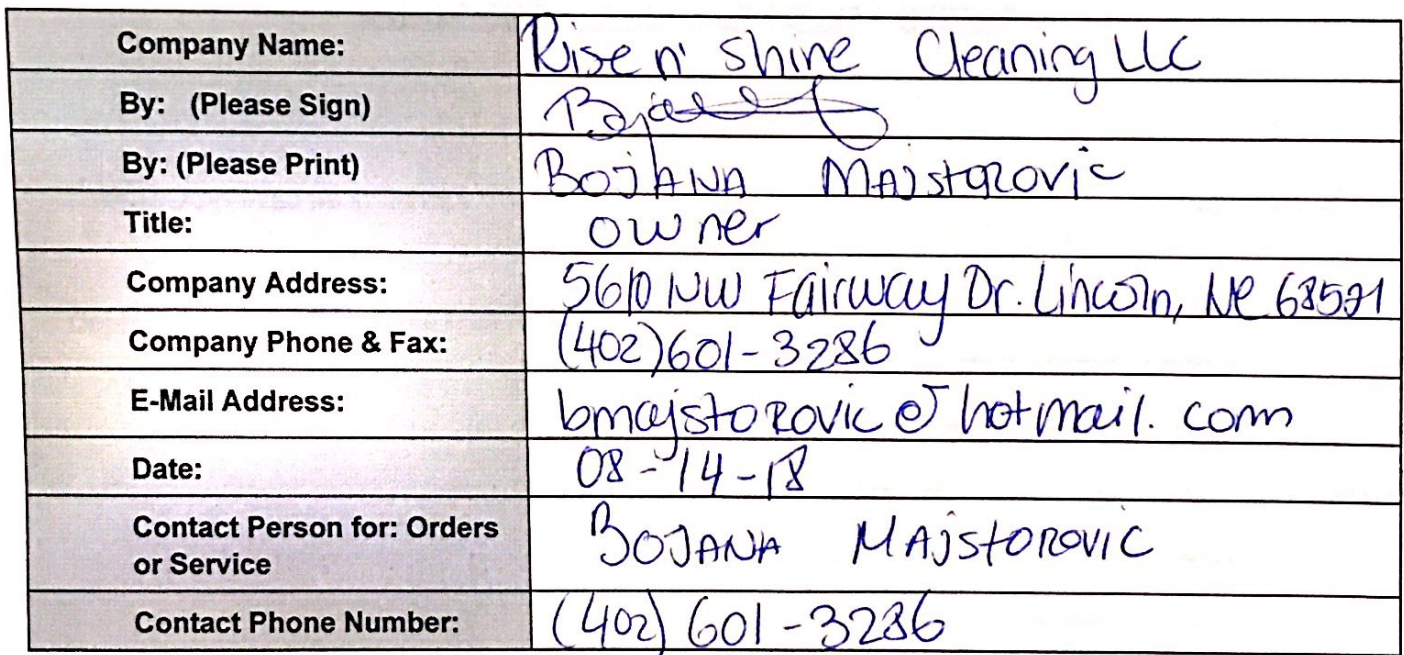 Company Name: Rise n' Shine Cleaning LLC
By: (Please Sign)
By: (Please Print) BOJANA MAJSTOROVIC
Title: owner
Company Address: 5610 NW Fairway Dr. Lincoln, Ne 68521
Company Phone & Fax: (402)601-3286
E-Mail Address: bmajstorovic@hotmail.com
Date: 08-14-18
Contact Person for: Orders
or Service BOJANA MAJSTOROVIC
Contact Phone Number: (402) 601-3286